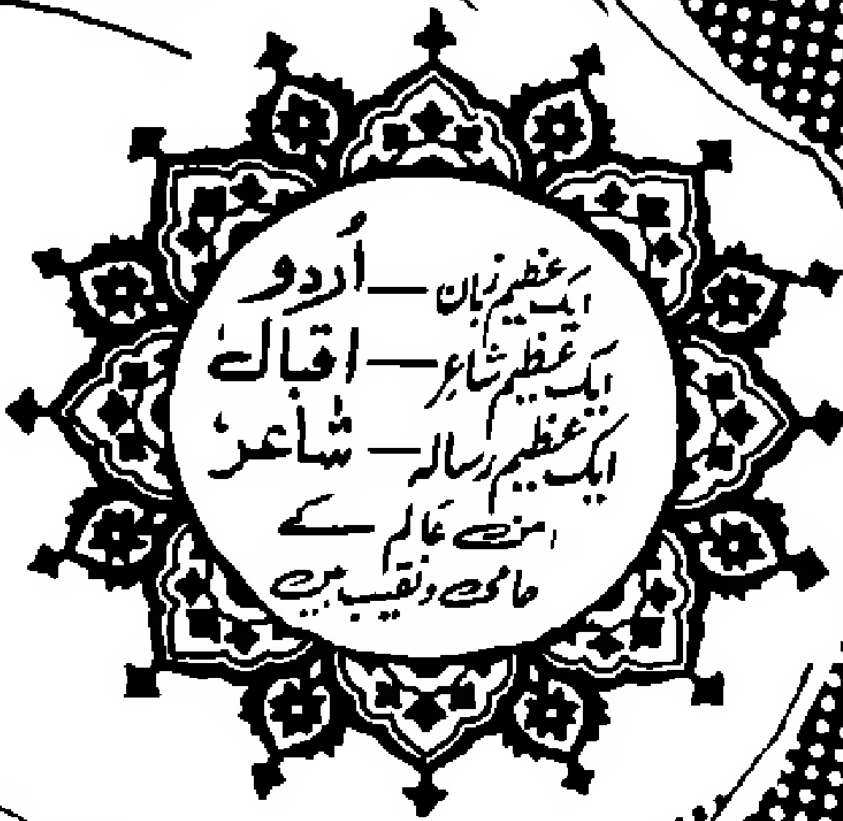 ایک عظیم زبان — اُردو
ایک عظیم شاعر — اقبال
ایک عظیم رسالہ — شاعر
امن عالم کے
حامی و نقیب ہیں